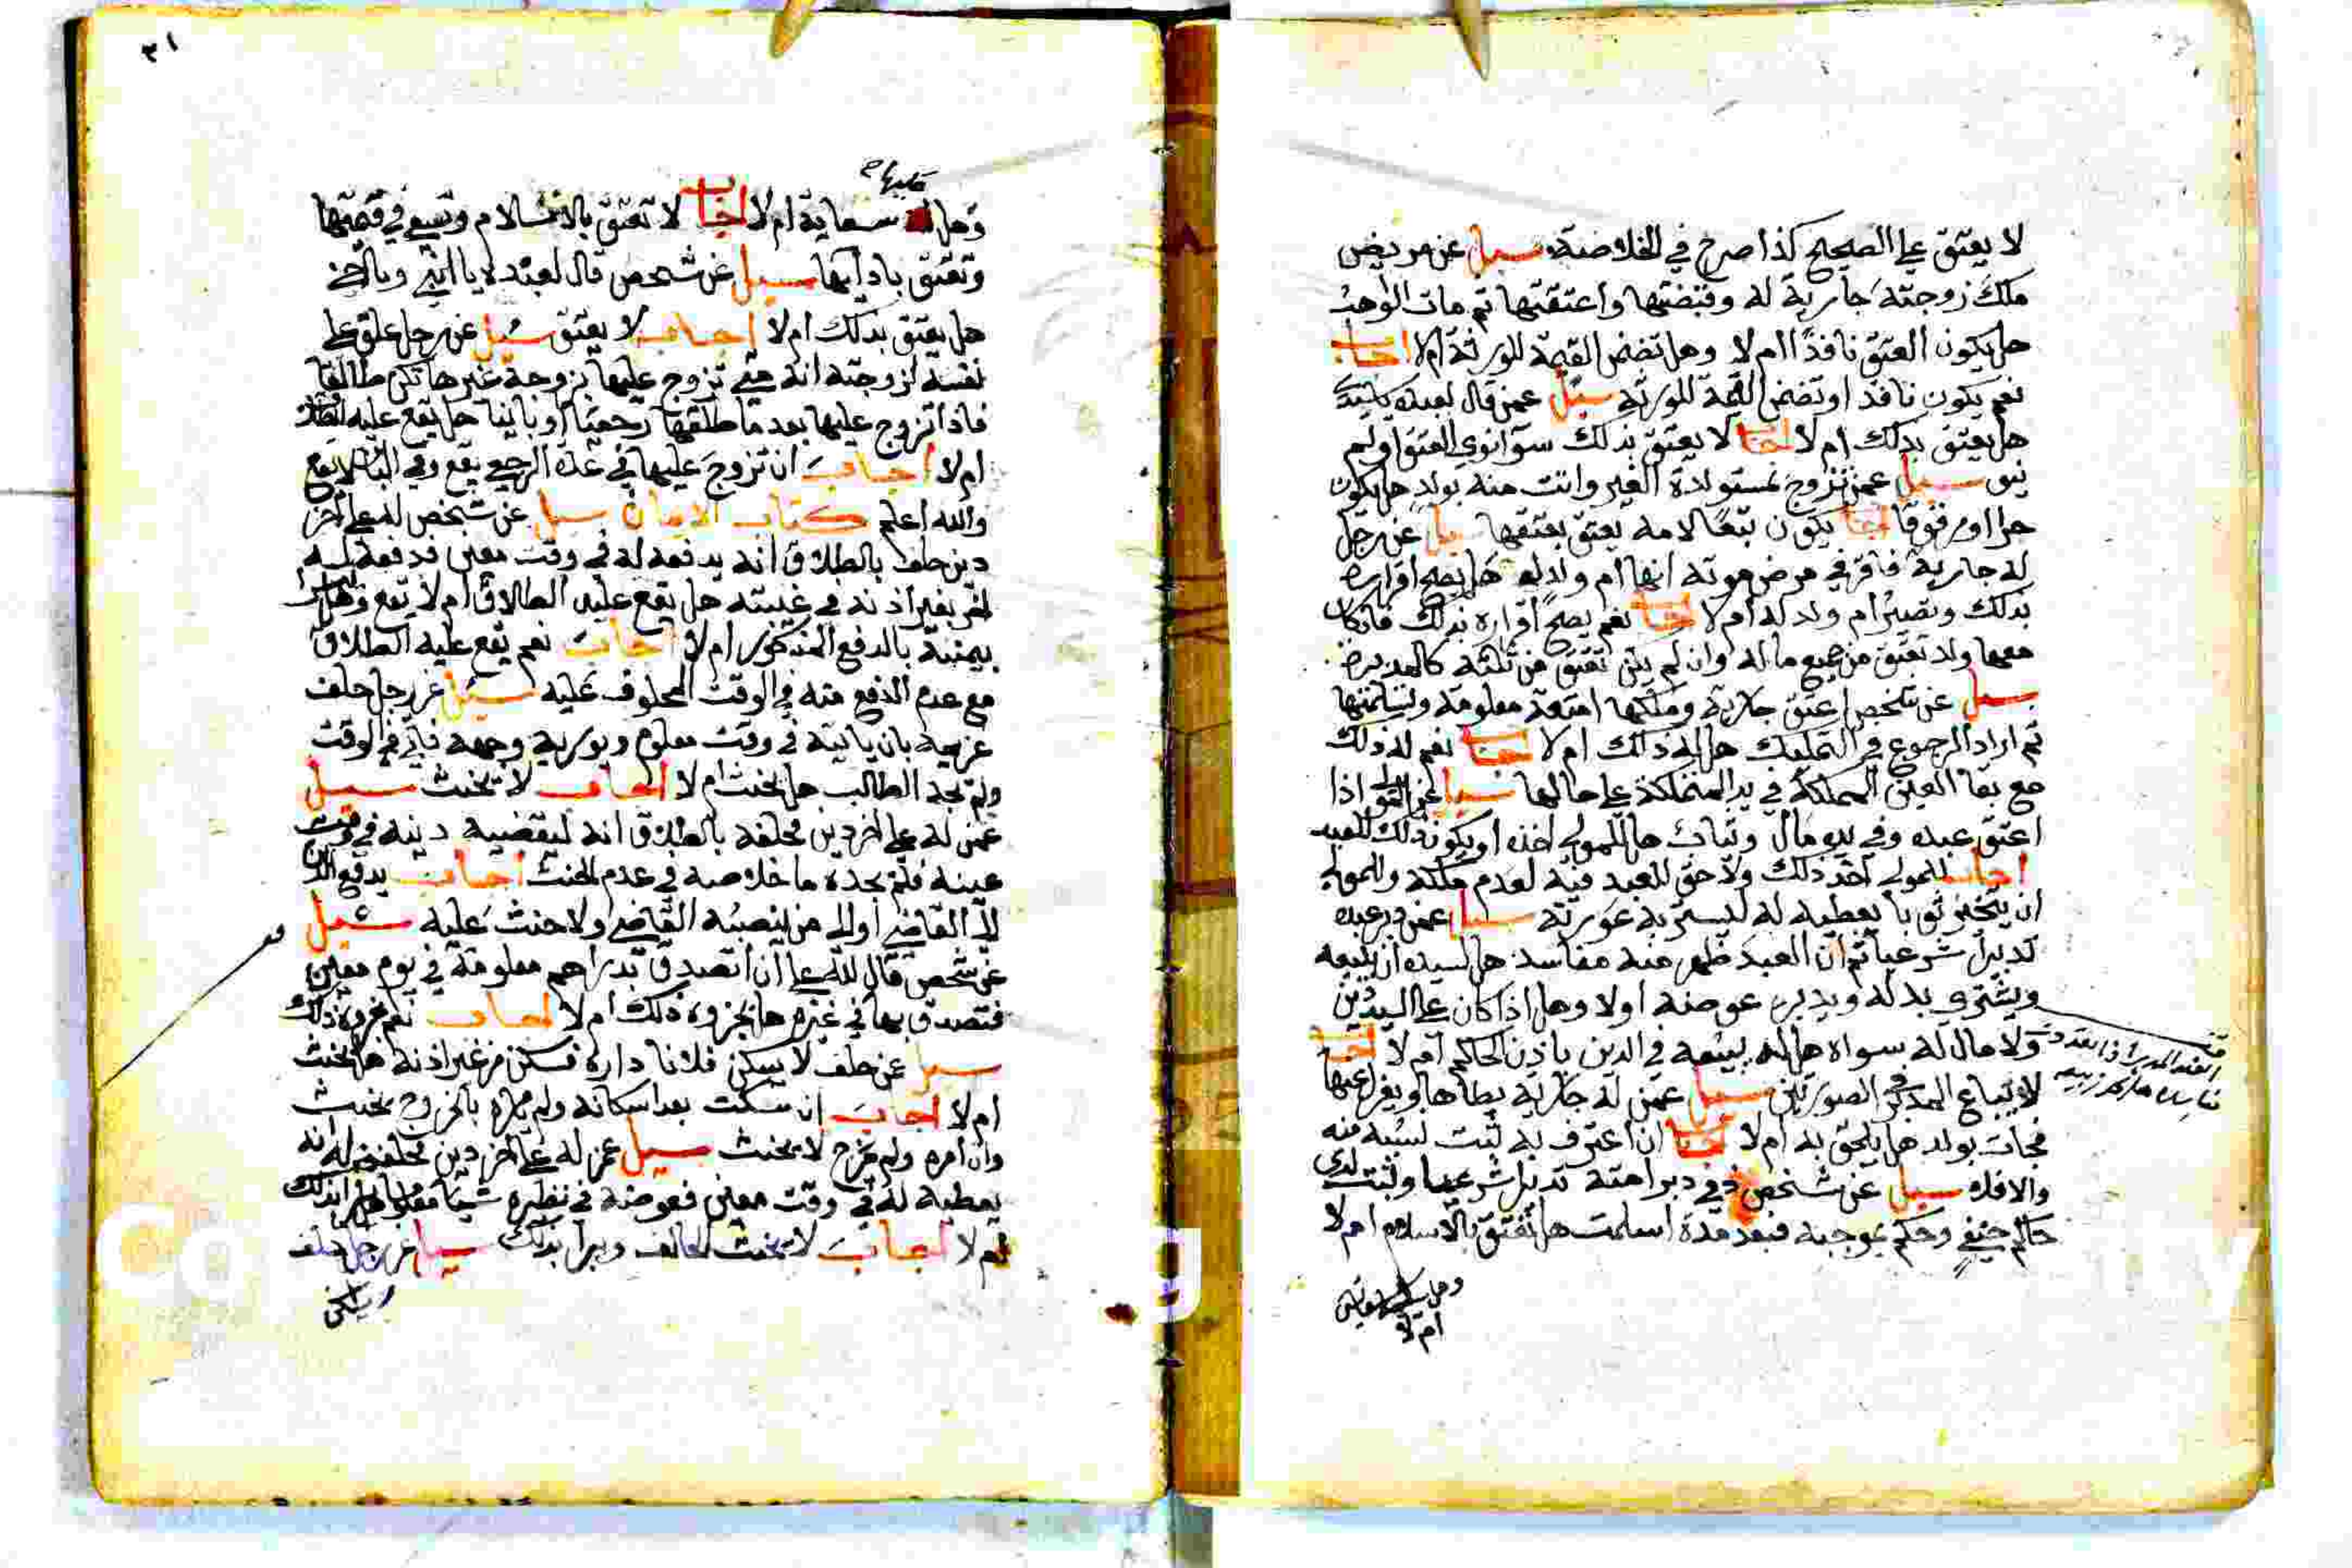 لا يعتق على الصحيح كذا صرح في الخلاصة سيل عن مريض
ملك زوجته جارية له وقبضتها واعتقتها ثم مات الواهب
هل يكون العتق نافذا ام لا وهل تضمن القيمة للورثة ام لا اجاب
نعم يكون نافذا وتضمن القيمة للورثة سيل عمن قال لعبده
هل يعتق بذلك ام لا اجاب لا يعتق بذلك سوا نوى العتق او لم
ينو سيل عمن تزوج بمستولدة الغير واتت منه بولد هل يكون
حرا او مرقوقا اجاب يكون تبعا لامه يعتق بعتقها سيل عن رجل
له جارية فاقر في مرض موته انها ام ولد له هل يصح اقراره
بذلك وتصير ام ولد له ام لا اجاب نعم يصح اقراره بذلك فان كان
معها ولد تعتق من جميع ماله وان لم يكن تعتق من ثلثه كالمدبرة
سيل عن شخص اعتق جارية وملكها امتعة معلومة وتسلمتها
ثم اراد الرجوع في التمليك هل له ذلك ام لا اجاب نعم له ذلك
مع بقا العين المملكة في يد المتملكة على حالها سيل عن المولى اذا
اعتق عبده وفي يده مال وثياب هل للمولى اخذه او يكون ذلك للعبد
اجاب للمولى اخذ ذلك ولا حق للعبد فيه لعدم ملكه وللمولى
ان يتخير ثوبا يعطيه له ليستر به عورته سيل عمن دبر عبده
تدبيرا شرعيا ثم ان العبد ظهر منه مفاسد هل لسيده ان يبيعه
ويشتري بدله ويدبره عوضه اولا وهل اذا كان على السيد دين
ولا مال له سواه هل له بيعه في الدين باذن الحاكم ام لا اجاب
لا يباع المدبر في الصورتين سيل عمن له جارية يطاها ويعزل عنها
فجات بولد هل يلحق به ام لا اجاب ان اعترف به ثبت نسبه منه
والا فلا سيل عن شخص ذمي دبر امته تدبيرا شرعيا وثبت لدى
حاكم حنفي وحكم بموجبه فبعد مدة اسلمت هل تعتق بالاسلام ام لا
ام لا
٣١
عليها
وهل سعاية ام لا اجاب لا تعتق بالاسلام وتسعى في قيمتها
وتعتق بادايها سيل عن شخص قال لعبده يا ابني ويا اخي
هل يعتق بذلك ام لا اجاب لا يعتق سيل عن رجل علق على
نفسه لزوجته انه متى تزوج عليها بزوجة غيرها تكن طالقا
فاذا تزوج عليها بعد ما طلقها رجعيا او باينا هل يقع عليه الطلاق
ام لا اجاب ان تزوج عليها في عدة الرجعي يقع وفي الباين لا يقع
والله اعلم كتاب الايمان سيل عن شخص له على اخر
دين حلف بالطلاق انه يدفعه له في وقت معين فدفعه له
اخر بغير اذنه في غيبته هل يقع عليه الطلاق ام لا يقع وهل يبرا
يمينه بالدفع المذكور ام لا اجاب نعم يقع عليه الطلاق
مع عدم الدفع منه في الوقت المحلوف عليه سيل عن رجل حلف
غريمه بان ياتيه في وقت معلوم ويوريه وجهه فاتى في الوقت
ولم يجد الطالب هل يحنث ام لا اجاب لا يحنث سيل
عمن له على اخر دين فحلفه بالطلاق انه ليقضيه دينه في وقت
عينه فلم يجده ما خلاصه في عدم الحنث اجاب يدفع الدين
الى القاضي او الى من ينصبه القاضي ولا حنث عليه سيل
عن شخص قال لله علي ان اتصدق بدراهم معلومة في يوم معين
فتصدق بها في غيره هل يجزوه ذلك ام لا اجاب نعم يجزوه ذلك
سيل عمن حلف لا يسكن فلانا داره فسكن من غير اذنه هل يحنث
ام لا اجاب ان سكت بعد اسكانه ولم يامره بالخروج يحنث
وان امره ولم يخرج لا يحنث سيل عمن له على اخر دين فحلفه انه
يعطيه له في وقت معين فعوضه في نظيره شيا معلوما هل يبرا بذلك
ام لا اجاب لا يحنث الحالف ويبرا بذلك سيل عن رجل حلف